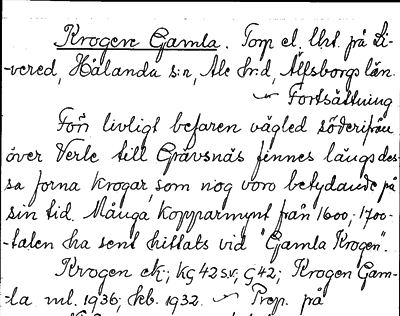 Krogen Gamla. Torp el. lht. på Li-
vered, Hålanda s:n, Ale h:d, Älfsborgs län.
Fortsättning
För livligt befaren vägled söderifrån
över Verle till Grävsnäs finnes längs des-
sa forna krogar, som nog voro betydande på
sin tid. Många kopparmynt från 1600-, 1700-
-talen ha sent hittats vid "Gamla Krogen".
Krogen ek; KG 42 sv, G 42; Krogen Gam-
-la ml. 1936; hb. 1932. Prep. på